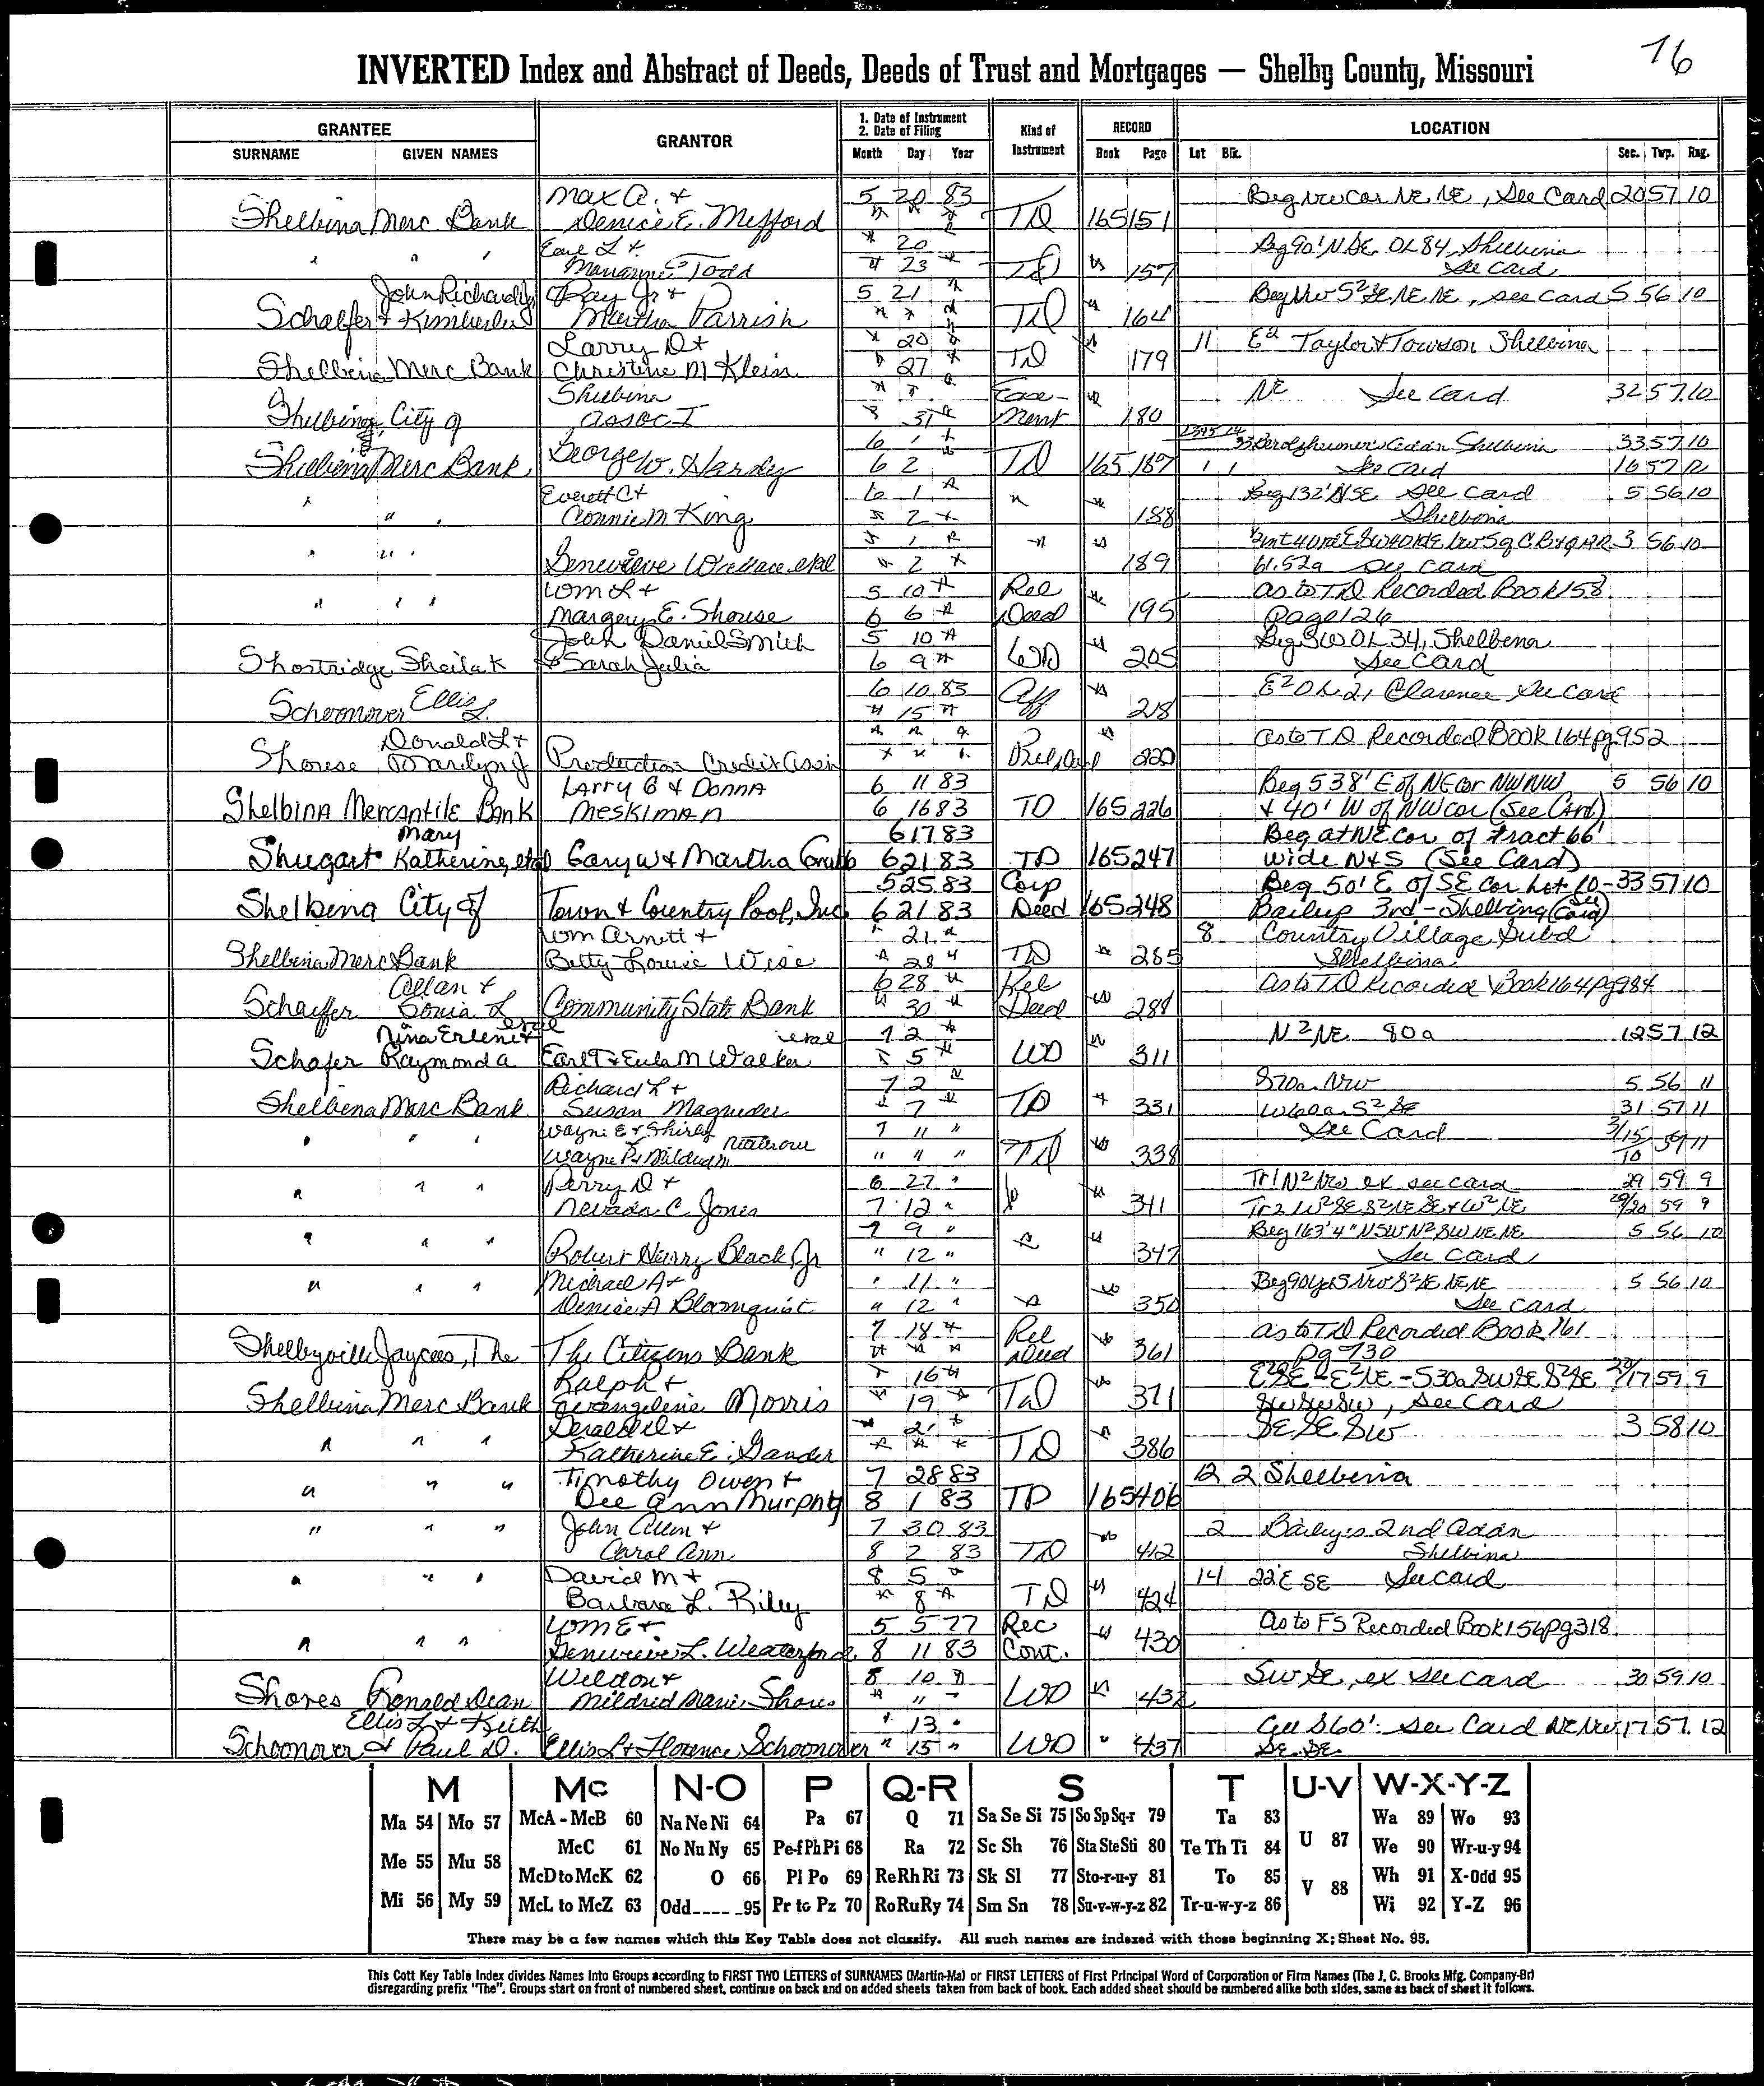 76
INVERTED Index and Abstract of Deeds, Deeds of Trust and Mortgages — Shelby County, Missouri
GRANTEE GRANTOR 1. Date of Instrument 2. Date of Filing Kind of Instrument RECORD LOCATION
SURNAME GIVEN NAMES Month Day Year Book Page Lot Blk. Sec. Twp. Rng.
Max A. + 5 20 83 Beg NW Cor NE NE, See Card 20 57 10
Shelbina Merc Bank Denice E. Mefford " " " TD 165 151
Earl L + " 20 Beg 90' N SE OL 84, Shelbina
" " " Marianne Todd " 23 " TD " 157 See Card
John Richard Jr Ray Jr + 5 21 " Beg NW S² SE NE NE, see Card 5 56 10
Schaffer + Kimberley Martha Parrish " " " TD " 164
Larry D + " 20 " 11 E² Taylor & Towson Shelbina
Shelbina Merc Bank Christine M Klein " 27 " TD " 179
Shelbina " " " Ease- NE See Card 32 57 10
Shelbina, City of Assoc I 31 " ment " 180
6 1 " Shelbina 33 57 10
Shelbina Merc Bank George W. Hardy 6 2 TD 165 187 1 1 See Card 16 57 12
Everett C + 6 1 " Beg 132' N SE See Card 5 56 10
" " " Connie M King " 2 " " " 188 Shelbina
" 1 " 3 56 10
" " " Genevieve Wallace etal " 2 " " " 189 61.52a See Card
Wm L + 5 10 " Rel As to TD Recorded Book 158
" " " Margery E. Shouse 6 6 " Deed " 195 Page 126
John Daniel Smith 5 10 " Beg SW OL 34, Shelbina
Shortridge Sheila K & Sarah Julia 6 9 " WD " 205 See Card
Ellis 6 10 83 E² OL 21 Clarence See Card
Schoonover L. " 15 " Aff " 218
Donald L + " " " As to TD Recorded Book 164 pg 952
Shouse Marilyn J Production Credit Assn " " " Rel Deed " 220
Larry G + Donna 6 11 83 Beg 538' E of NE Cor NW NW 5 56 10
Shelbina Mercantile Bank Meskiman 6 16 83 TD 165 226 + 40' W of NW cor (See Card)
Mary 6 17 83 Beg at NE cor of tract 66'
Shugart Katherine, etal Gary W + Martha Grubb 6 21 83 TD 165 247 wide N+S (See Card)
5 25 83 Corp Beg 50' E of SE Cor Lot 10 - 33 57 10
Shelbina City of Town + Country Pool, Inc. 6 21 83 Deed 165 248 Baileys 3rd - Shelbina (See Card)
Wm Arnett + " 21 " 8 Country Village Subd
Shelbina Merc Bank Betty Louise Wise " 28 " TD " 285 Shelbina
Allan + 6 28 " Rel As to TD Recorded Book 164 pg 984
Schaffer Sonia L Community State Bank " 30 " Deed " 288
Nina Erlene + etal etal 7 2 " N² NE 80a 12 57 12
Schafer Raymond A Earl T + Eula M Walker " 5 " WD " 311
Richard L + 7 2 " S70a NW 5 56 11
Shelbina Merc Bank Susan Magruder " 7 " TD " 331 W60a S² SE 31 57 11
Wayne E + Shirley 7 11 " See Card 3/15
" " " Wayne P + Mildred M " " " TD " 338 10 59 11
Perry D + 6 27 " Tr 1 N² NW ex see card 29 59 9
" " " Nevada C Jones 7 12 " " " 341 Tr 2 W² SE S² NE SE + W² NE 29/20 59 9
7 9 " Beg 163' 4" N SW N² SW NE NE 5 56 10
" " " Robert Harry Black Jr " 12 " " " 347 See Card
Michael A + " 11 " 5 56 10
" " " Denise A Blomquist " 12 " " " 350 See Card
7 18 " Rel As to TD Recorded Book 161
Shelbyville Jaycees, The The Citizens Bank " " " Deed " 361 Pg 730
Ralph + " 16 " E² SE - E² NE - S30a SW SE S² SE 20/17 59 9
Shelbina Merc Bank Evangeline Morris " 19 " TD " 371 SW SW SW, See Card
Gerald D + " 21 " SE SE SW 3 58 10
" " " Katherine E. Gander " " " TD " 386
Timothy Owen + 7 28 83 12 2 Shelbina
" " " Dee Ann Murphy 8 1 83 TD 165 406
John Allen + 7 30 83 2 Baileys 2nd Addn
" " " Carol Ann 8 2 83 TD " 412 Shelbina
David M + 8 5 " 14 22' E SE See card
" " " Barbara L. Riley " 8 " TD " 424
Wm E + 5 5 77 Rec As to FS Recorded Book 156 pg 318
" " " Genevieve L. Weatherford 8 11 83 Cont. " 430
Weldon + 8 10 " SW SE, ex See Card 30 59 10
Shores Ronald Dean Mildred Marie Shores " 11 " WD " 432
Ellis L + Keith " 13 " All S60' See Card NE NW 17 57 12
Schoonover & Paul D. Ellis L + Florence Schoonover " 15 " WD " 437 SE SE
M Mc N-O P Q-R S T U-V W-X-Y-Z
Ma 54 Mo 57 McA - McB 60 Na Ne Ni 64 Pa 67 Q 71 Sa Se Si 75 So Sp Sq-r 79 Ta 83 Wa 89 Wo 93
Me 55 Mu 58 McC 61 No Nu Ny 65 Pe-f Ph Pi 68 Ra 72 Sc Sh 76 Sta Ste Sti 80 Te Th Ti 84 U 87 We 90 Wr-u-y 94
McD to McK 62 O 66 Pl Po 69 Re Rh Ri 73 Sk Sl 77 Sto-r-u-y 81 To 85 V 88 Wh 91 X-Odd 95
Mi 56 My 59 McL to McZ 63 Odd---- -95 Pr to Pz 70 Ro Ru Ry 74 Sm Sn 78 Su-v-w-y-z 82 Tr-u-w-y-z 86 Wi 92 Y-Z 96
There may be a few names which this Key Table does not classify. All such names are indexed with those beginning X; Sheet No. 95.
This Cott Key Table Index divides Names Into Groups according to FIRST TWO LETTERS of SURNAMES (Martin-Ma) or FIRST LETTERS of First Principal Word of Corporation or Firm Names (The J. C. Brooks Mfg. Company-Br)
disregarding prefix "The". Groups start on front of numbered sheet, continue on back and on added sheets taken from back of book. Each added sheet should be numbered alike both sides, same as back of sheet it follows.